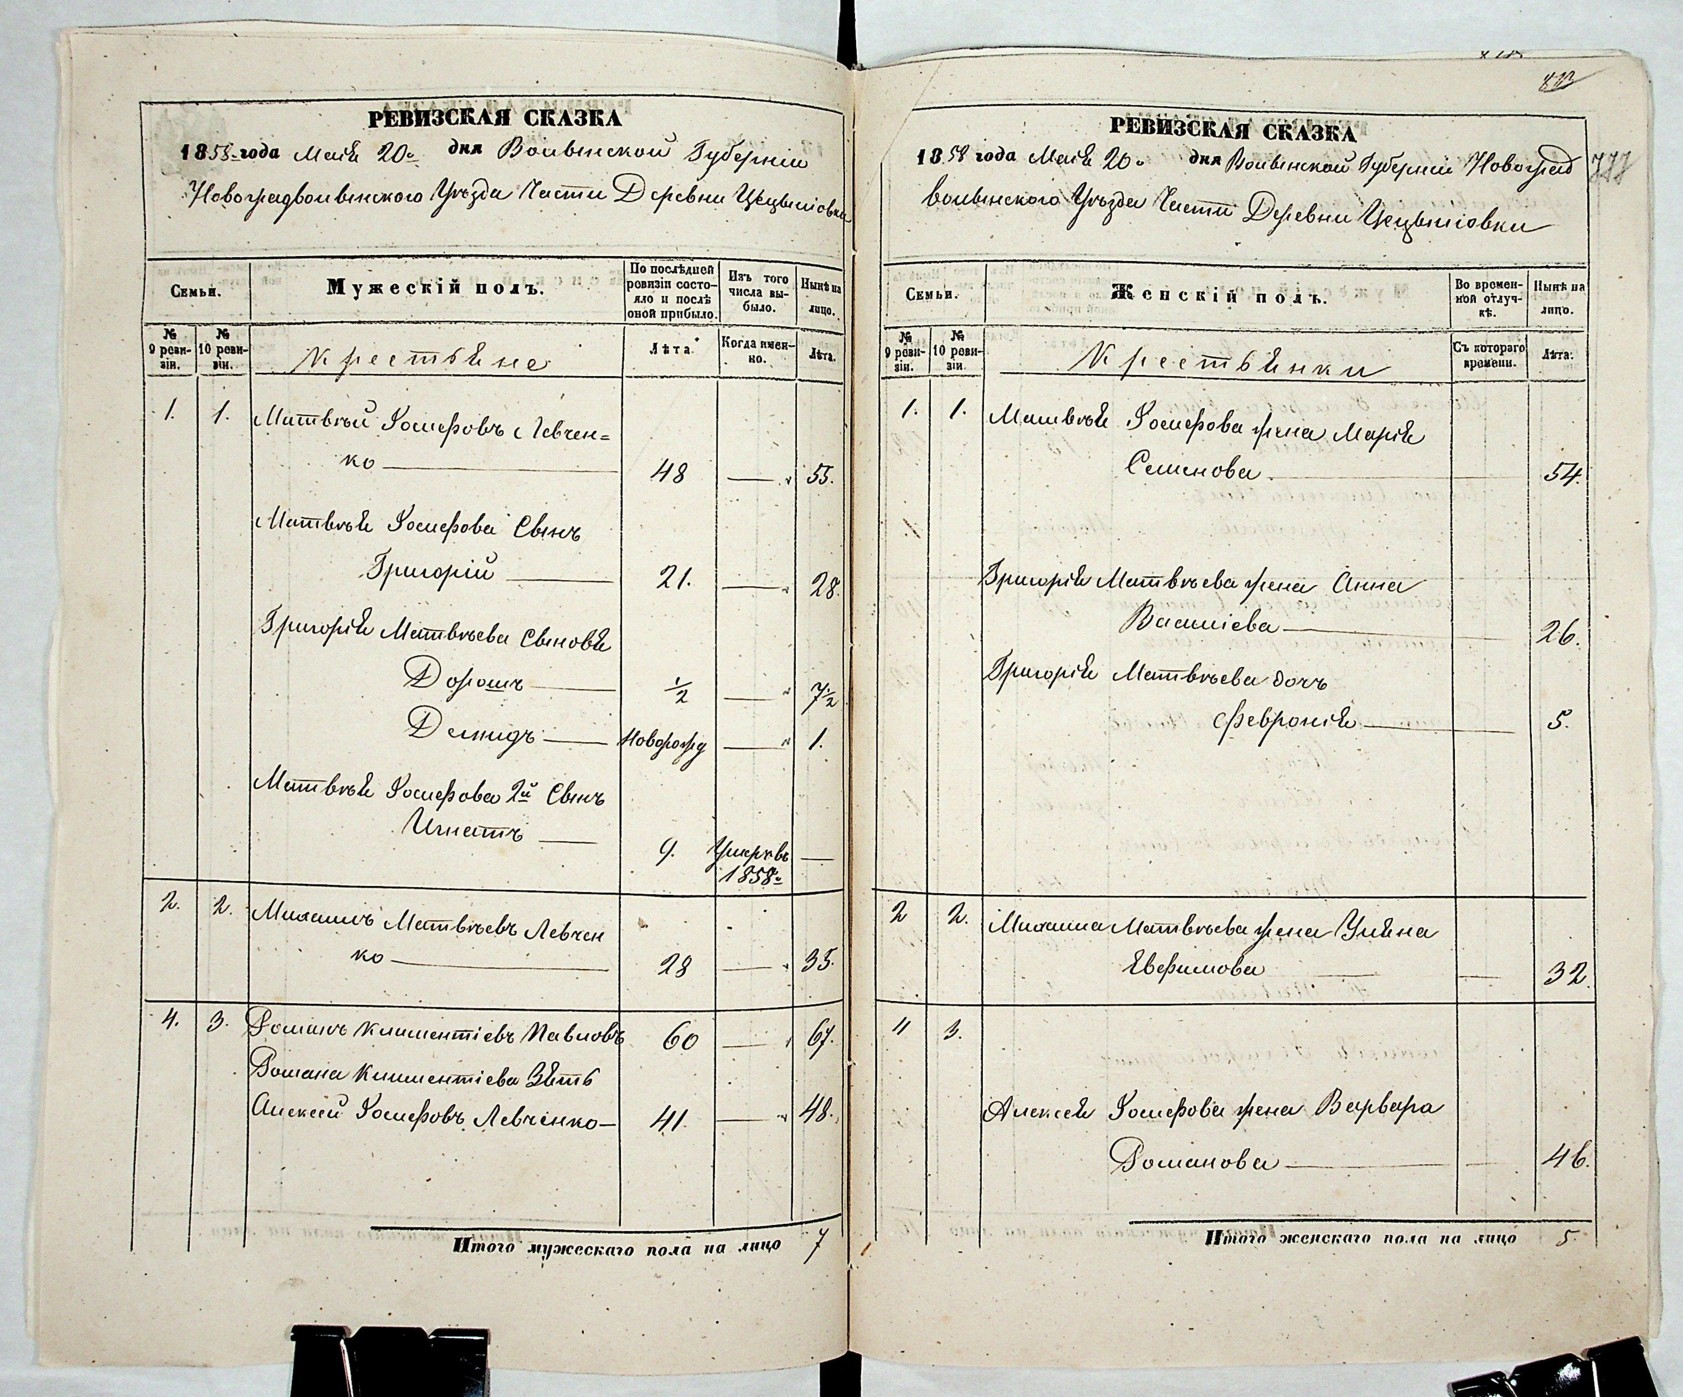 РЕВИЗСКАЯ СКАЗКА
1858 года Мая 20 дня Волынской Губерніи
Новоградволынского Уѣзда Части Деревни
Семьи.
Мужескій полъ.
По послѣдней ревизіи состояло и послѣ оной прибыло.
Изъ того числа выбыло.
Нынѣ на лицо.
№ 9 ревизіи.
№ 10 ревизіи.
Крестьяне
Лѣта.
Когда именно.
Лѣта.
1. 1. Матвѣй Іосифовъ Левчен=
ко 48 55.
Матвѣя Іосифова Сынъ
Григорій 21. 28.
Григорія Матвѣева Сыновья
Дорошъ ½ 7½
Демидъ новорожд 1.
Матвѣя Іосифова 2й Сынъ
Игнатъ 9. Умеръ въ
1858
2. 2. Михаилъ Матвѣевъ Левчен
ко 28 35.
4. 3. Романъ Климентіевъ Павловъ 60 67.
Романа Климентіева Зять
Алексѣй Іосифовъ Левченко 41. 48.
Итого мужескаго пола на лицо 7
РЕВИЗСКАЯ СКАЗКА
1858 года Мая 20 дня Волынской Губерніи Новоград
волынского Уѣзда Части Деревни
Семьи.
Женскій полъ.
Во временной отлучкѣ.
Нынѣ на лицо.
№ 9 ревизіи.
№ 10 ревизіи
Крестьянки
Съ котораго времени.
Лѣта.
1. 1. Матвѣя Іосифова жена Марія
Семенова 54.
Григорія Матвѣева жена Анна
Василіева 26.
Григорія Матвѣева дочь
Февронія 5.
2 2. Михаила Матвѣева жена Ульяна
Евфимова 32
3.
Алексея Іосифова жена Варвара
Романова 46.
Итого женскаго пола на лицо 5.